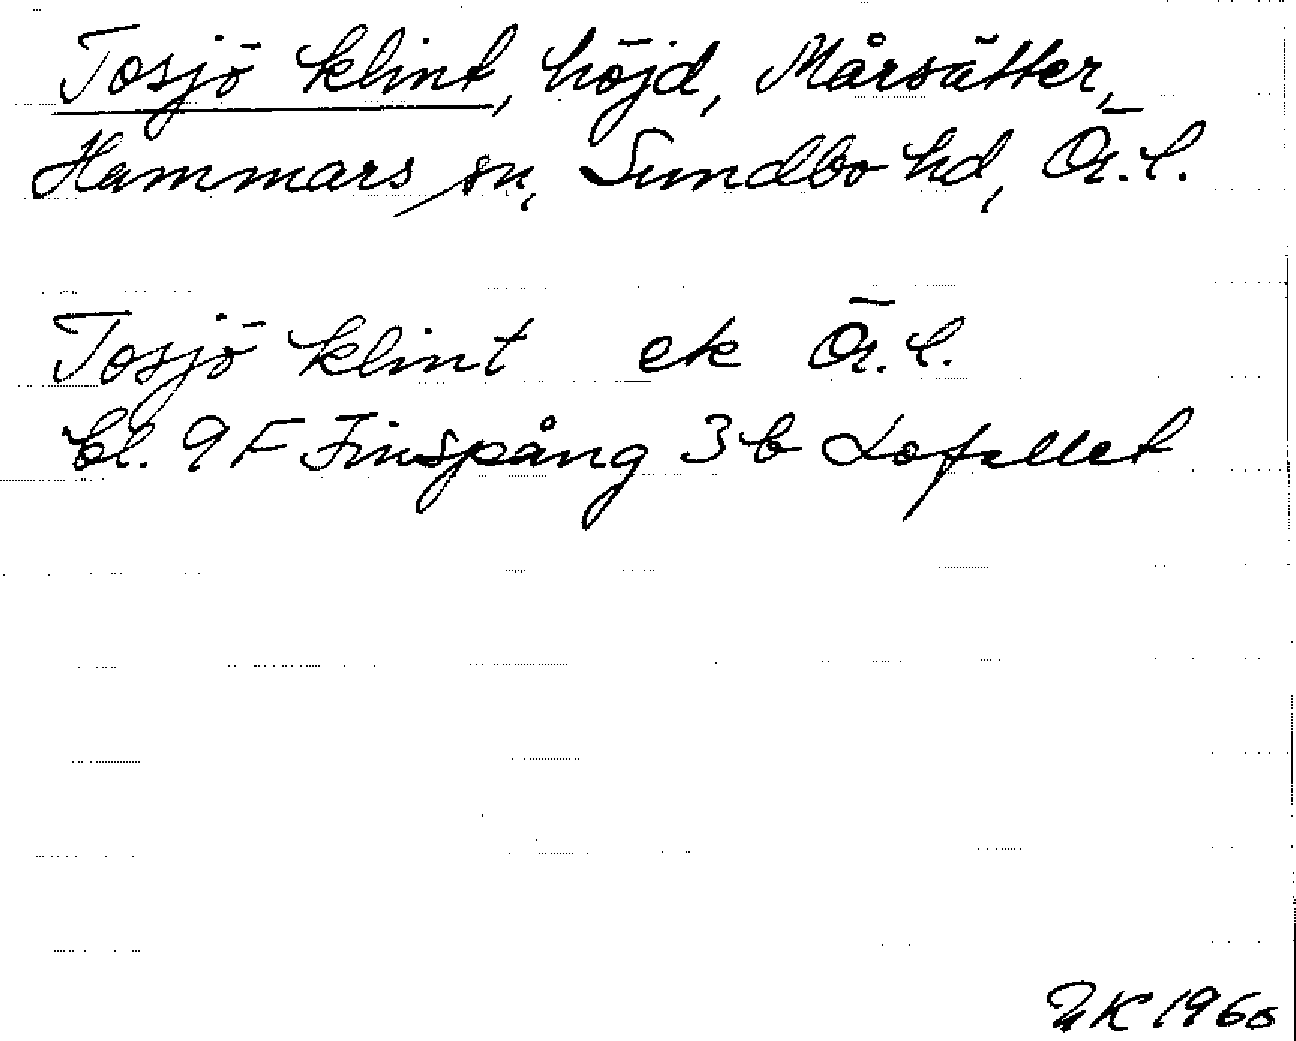 Tosjö klint, höjd, Mårsätter,
Hammars sn, Sundbo hd, Ör. l.
Tosjö klint ek Ör. l.
bl. 9 F Finspång 3 b Lofallet
NK 1960